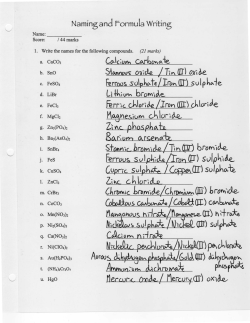 Naming and Formula Writing
Name:
Score: / 44 marks
1. Write the names for the following compounds. (21 marks)
a. CaCO₃ Calcium carbonate
b. SnO Stannous oxide / Tin (II) oxide
c. FeSO₄ Ferrous sulphate / Iron (II) sulphate
d. LiBr Lithium bromide
e. FeCl₃ Ferric chloride / Iron (III) chloride
f. MgCl₂ Magnesium chloride
g. Zn₃(PO₄)₂ Zinc phosphate
h. Ba₃(AsO₄)₂ Barium arsenate
i. SnBr₄ Stannic bromide / Tin (IV) bromide
j. FeS Ferrous sulphide / Iron (II) sulphide
k. CuSO₄ Cupric sulphate / Copper (II) sulphate
l. ZnCl₂ Zinc chloride
m. CrBr₃ Chromic bromide / Chromium (III) bromide
n. CoCO₃ Cobaltous carbonate / Cobalt (II) carbonate
o. Mn(NO₃)₂ Manganous nitrate / Manganese (II) nitrate
p. Ni₂(SO₄)₃ sulphate / Nickel (III) sulphate
q. Ca(NO₃)₂ Calcium nitrate
r. perchlorate / Nickel perchlorate
s. Aurous dihydrogen phosphate / Gold dihydrogen phosphate
t. (NH₄)₂Cr₂O₇ Ammonium dichromate
u. HgO Mercuric oxide / Mercury (II) oxide